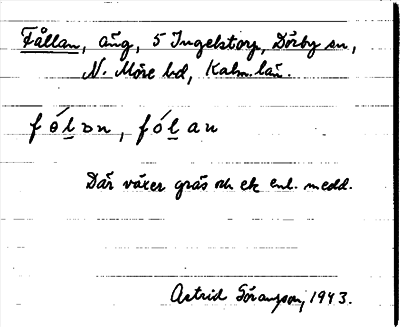 Fållan, äng, 5 Ingelstorp, Dörby sn,
N. Möre hd, Kalm. län.
fólɔn, fólan
Där växer gräs och ek enl. medd.
Astrid Göransson, 1943.